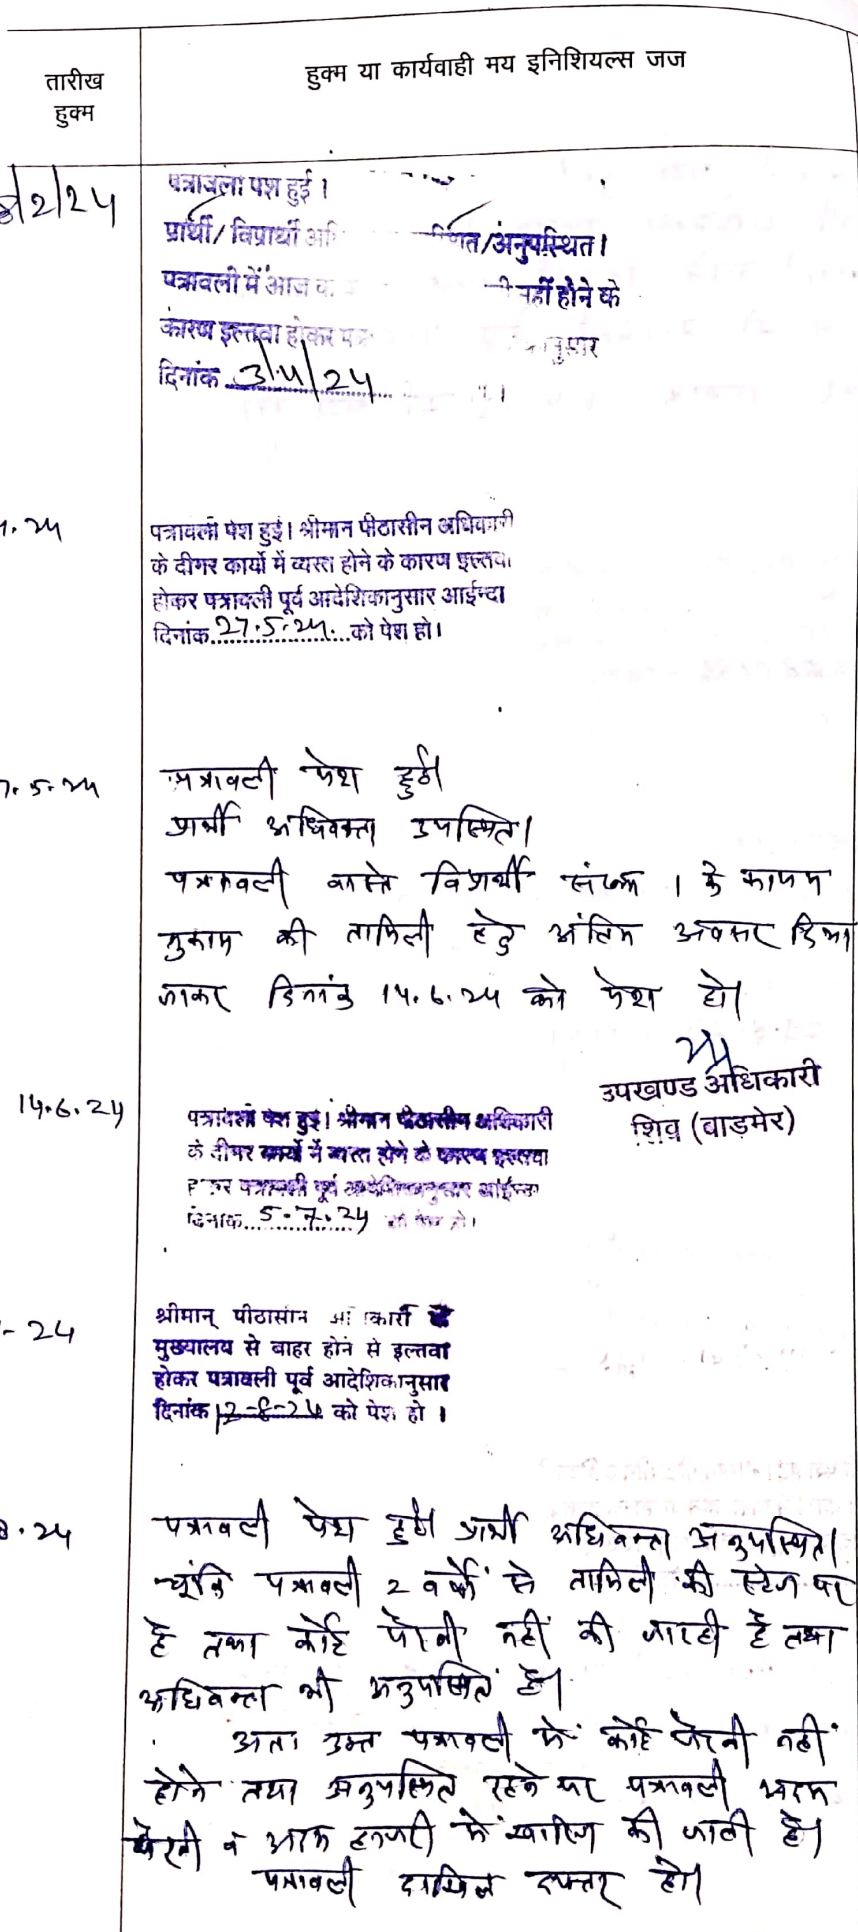 तारीख
हुक्म
हुक्म या कार्यवाही मय इनिशियल्स जज
/2/24
पत्रावली पेश हुई ।
प्रार्थी/ विप्रार्थी /अनुपस्थित।
पत्रावली में आज नहीं होने के
कारण इल्तवा होकर
दिनांक 3/4/24
.24
पत्रावली पेश हुई। श्रीमान पीठासीन अधिकारी
के दीगर कार्यो में व्यस्त होने के कारण इल्तवा
होकर पत्रावली पूर्व आदेशिकानुसार आईन्दा
दिनांक 27.5.24 को पेश हो।
7.5.24
पत्रावली पेश हुई।
प्रार्थी अधिवक्ता उपस्थित।
पत्रावली वास्ते विप्रार्थी संख्या 1 के कायम
मुकाम की तामिली हेतु अंतिम अवसर दिया
जाकर दिनांक 14.6.24 को पेश हो।
उपखण्ड अधिकारी
शिव (बाड़मेर)
14.6.24
पत्रावली पेश हुई। श्रीमान पीठासीन अधिकारी
के दीगर कार्यो में व्यस्त होने के कारण इल्तवा
होकर पत्रावली पूर्व आदेशिकानुसार आईन्दा
दिनांक 5.7.24 को पेश हो।
-24
श्रीमान् पीठासीन के
मुख्यालय से बाहर होने से इल्तवा
होकर पत्रावली पूर्व आदेशिकानुसार
दिनांक 12-8-24 को पेश हो ।
8.24
पत्रावली पेश हुई। प्रार्थी अधिवक्ता अनुपस्थित।
चूंकि पत्रावली 2 वर्षों से तामिली की स्टेज पर
है तथा कोई पैरवी नहीं की जा रही है तथा
अधिवक्ता भी अनुपस्थित है।
अतः उक्त पत्रावली में कोई पैरवी नहीं
होने तथा अनुपस्थित रहने पर पत्रावली अदम
पैरवी व अदम हाजरी में खारिज की जाती है।
पत्रावली दाखिल दफ्तर हो।